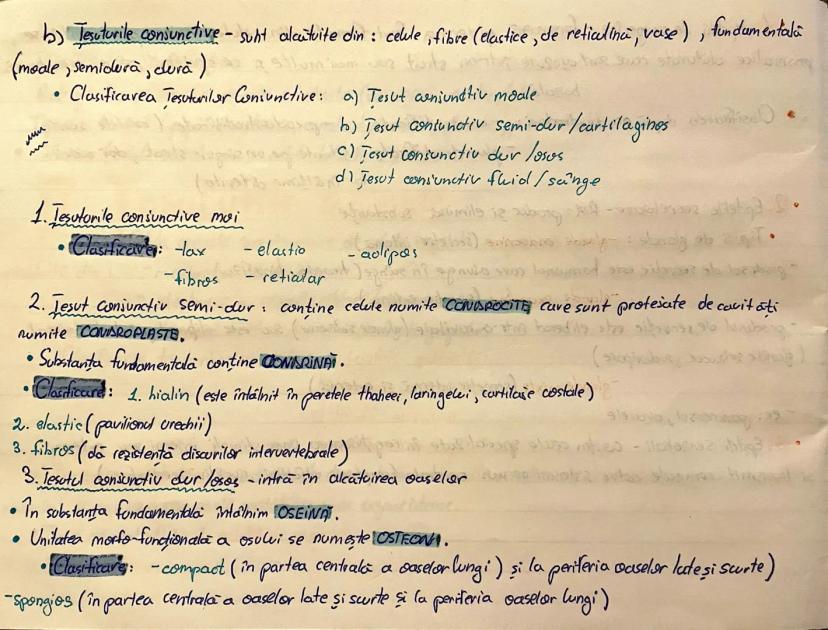 b) Țesuturile conjunctive - sunt alcătuite din : celule, fibre (elastice, de reticulină, vase), fundamentală
(moale, semidură, dură)
• Clasificarea Țesuturilor Conjunctive: a) Țesut conjunctiv moale
b) Țesut conjunctiv semi-dur/cartilaginos
c) Țesut conjunctiv dur/osos
d) Țesut conjunctiv fluid/sânge
1. Țesuturile conjunctive moi
• Clasificare: -lax - elastic - adipos
-fibros - reticular
2. Țesut conjunctiv semi-dur: conține celule numite CONDROCITE care sunt protejate de cavități
numite CONDROPLASTE.
• Substanța fundamentală conține CONDRINĂ.
• Clasificare: 1. hialin (este întâlnit în peretele traheei, laringelui, cartilaje costale)
2. elastic (pavilionul urechii)
3. fibros (dă rezistență discurilor intervertebrale)
3. Țesutul conjunctiv dur/osos - intră în alcătuirea oaselor
• În substanța fundamentală întâlnim OSEINĂ.
• Unitatea morfo-funcțională a osului se numește OSTEON.
• Clasificare: -compact (în partea centrală a oaselor lungi) și la periferia oaselor late și scurte)
-spongios (în partea centrală a oaselor late și scurte și la periferia oaselor lungi)